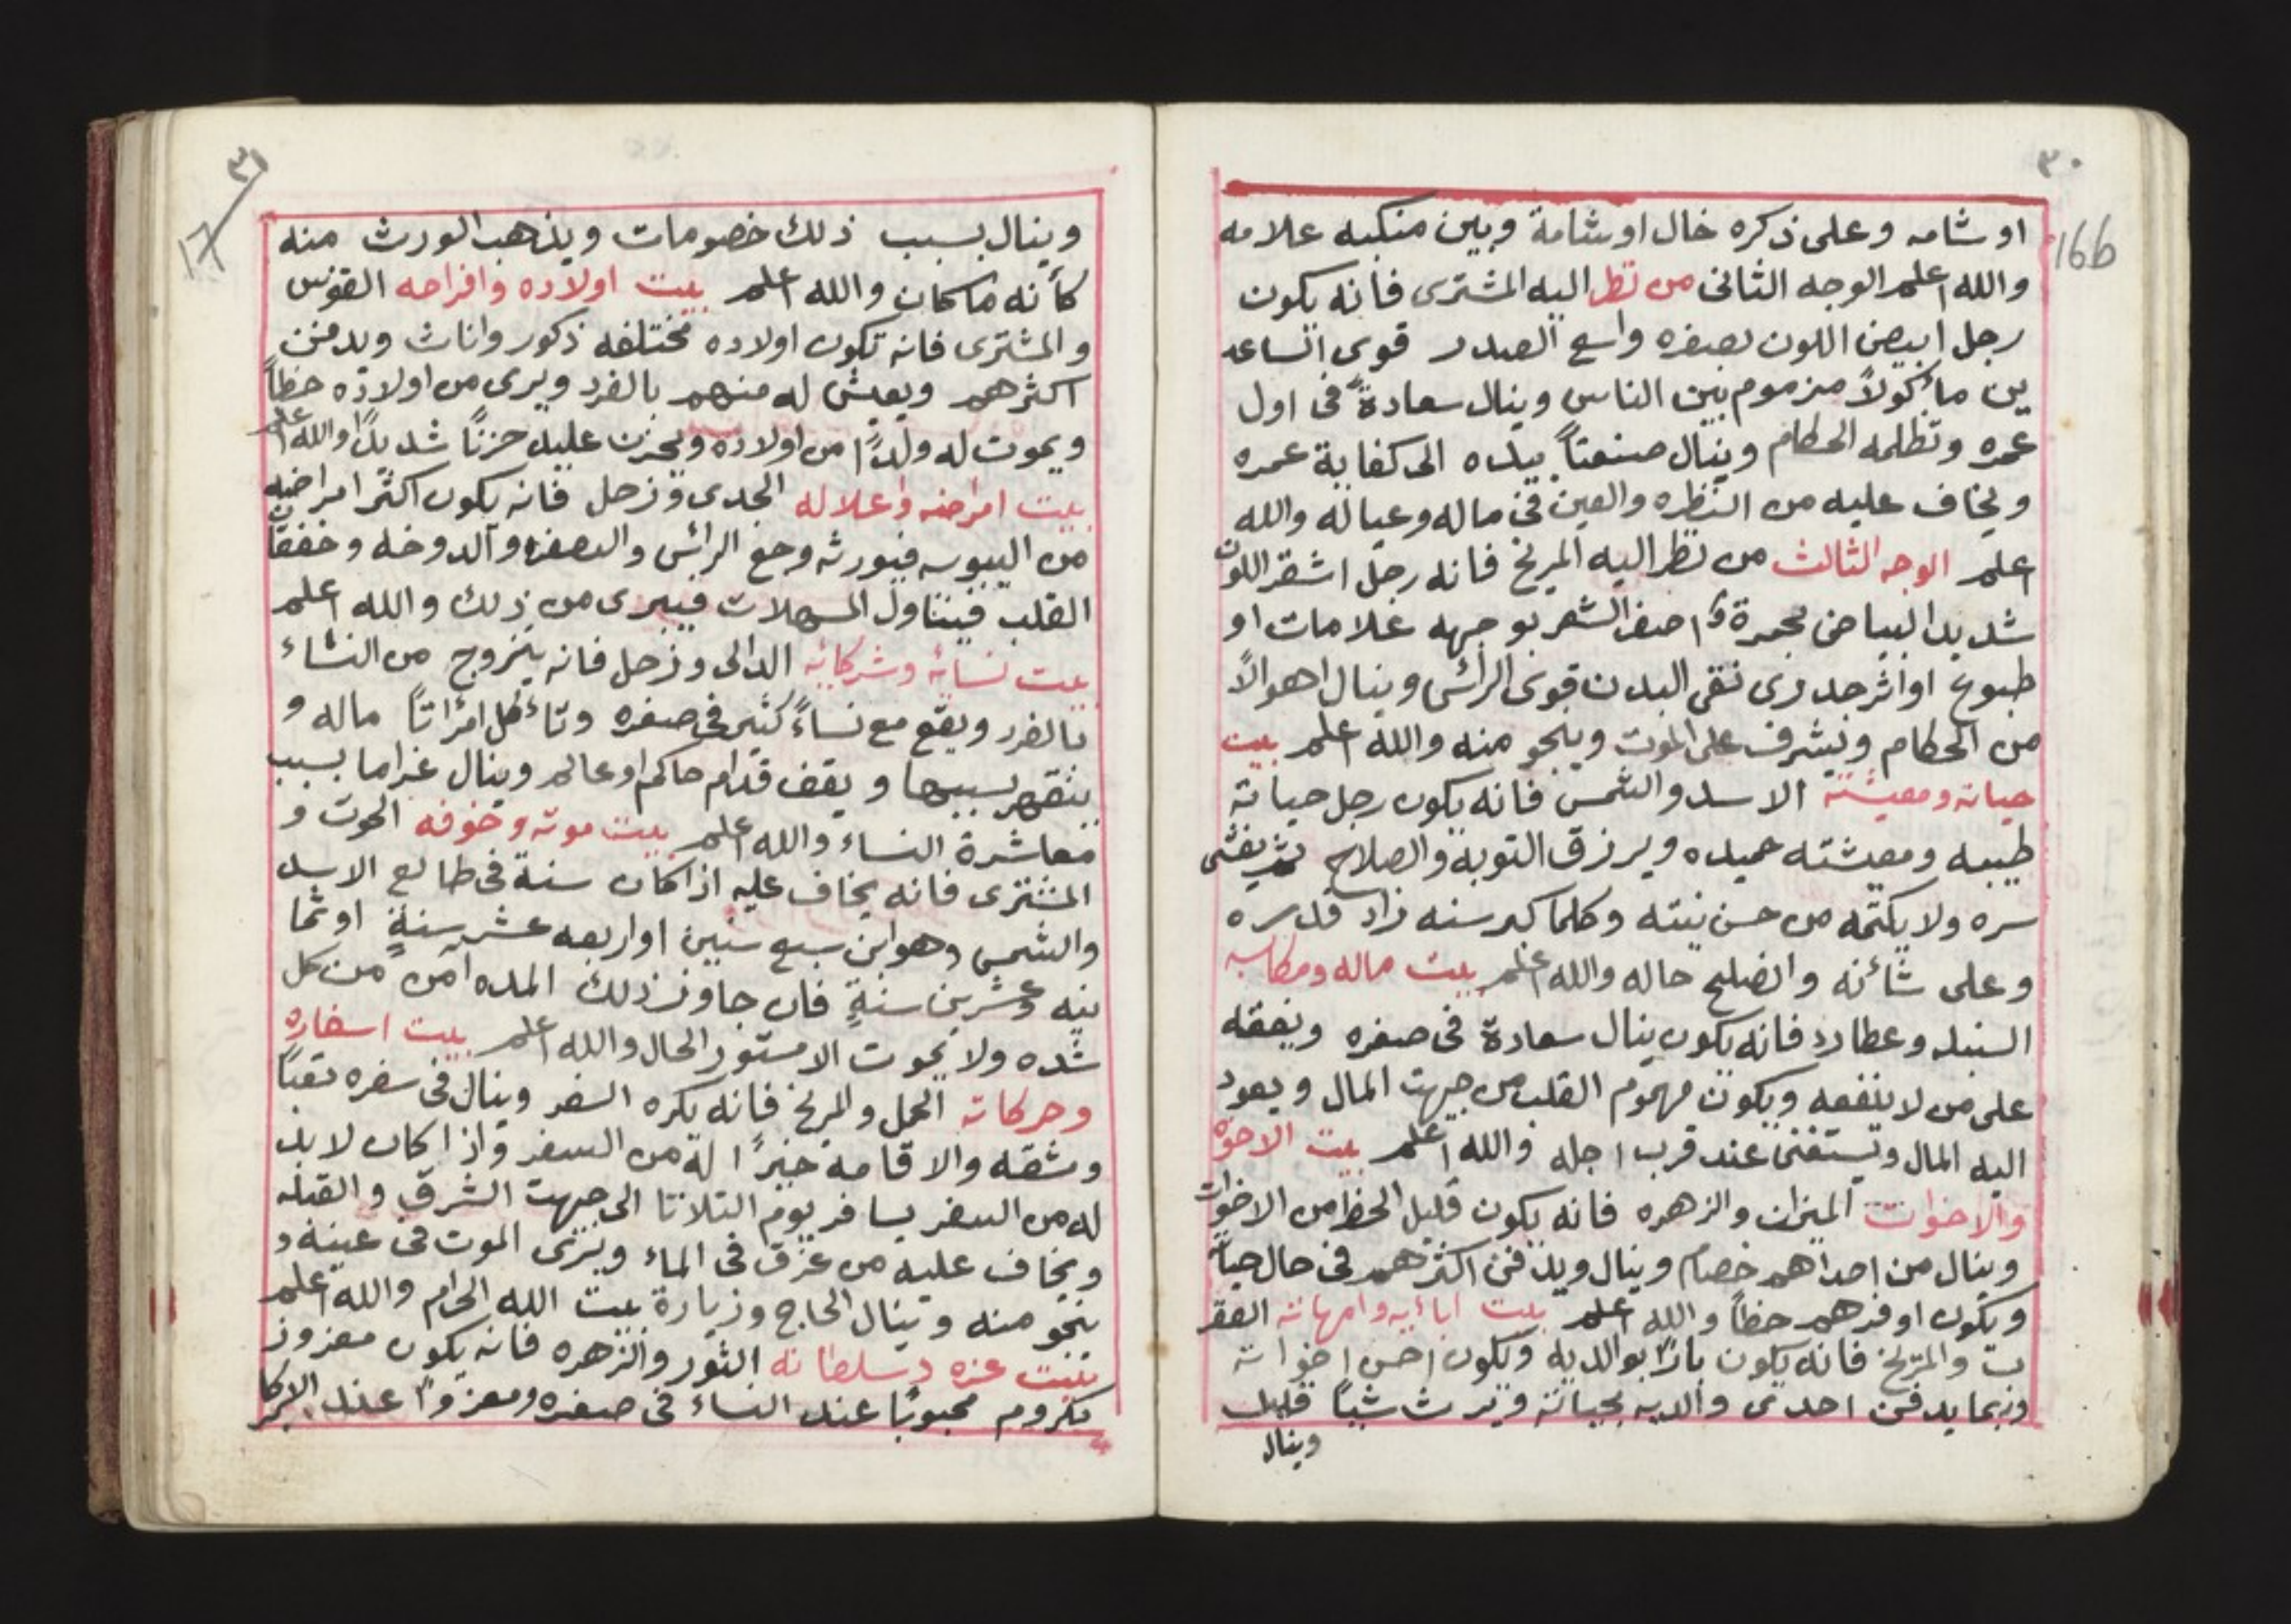 ٣٠
16b
او شامه وعلى ذكره خال او شامة وبين منكبه علامه
والله اعلم الوجه الثانى من نظر اليه المشترى فانه يكون
رجل ابيض اللون بصفره واسع الصدر قوى الساعد
ين مأكولاً مزموم بين الناس وينال سعادةً فى اول
عمره وتظلمه الحكام وينال صنعتاً بيده الى كفاية عمره
ويخاف عليه من النظره والعين فى ماله وعياله والله
اعلم الوجه الثالث من نظر اليه المريخ فانه رجل اشقر اللون
شديد البياض بحمرة واصفر الشعر بوجهه علامات او
طبوع او اثر جدرى نقى البدن قوى الرائس وينال اهوالاً
من الحكام ويشرف على الموت وينجو منه والله اعلم بيت
حياته ومعيشته الاسد والشمس فانه يكون رجل حياته
طيبه ومعيشته حميده ويرزق التوبه والصلاح ثم يفشى
سره ولا يكتمه من حسن نيته وكلما كبر سنه زاد قدره
وعلى شائنه وانصلح حاله والله اعلم بيت ماله ومكاسبه
السنبله وعطارد فانه يكون ينال سعادة فى صغره وينفقه
على من لا ينفعه ويكون مهموم القلب من جهت المال ويعود
اليه المال ويستغنى عند قرب اجله والله اعلم بيت الاخوه
والاخوات الميزان والزهره فانه يكون قليل الحظ من الاخوات
وينال من احداهم خصام وينال ويدفن اكثرهم فى حال حياته
ويكون اوفرهم حظاً والله اعلم بيت ابائيه وامهاته العقر
ب والمريخ فانه يكون باراً بوالديه ويكون احسن اخواته
وربما يدفن احدى والديه بحياته ويرث شيئاً قليل
وينال
٣١
17
وينال بسبب ذلك خصومات ويذهب الورث منه
كأنه ما كان والله اعلم بيت اولاده وافراحه القوس
والمشترى فانه تكون اولاده مختلفه ذكور واناث ويدفن
اكثرهم ويعيش له منهم بالفرد ويرى من اولاده حظاً
ويموت له ولداً من اولاده ويحزن عليه حزناً شديداً والله اعلم
بيت امراضه واعلاله الجدى وزحل فانه يكون اكثر امراضه
من اليبوسه فيورثه وجع الرائس والصفرا والدوخه وخفقان
القلب فيتناول المسهلات فيبرى من ذلك والله اعلم
بيت نسائه وشركائه الدالى وزحل فانه يتزوج من النساء
بالفرد ويقع مع نساءً كثير فى صغره وتأكل امرأتاً ماله و
ينقهر بسببها ويقف قدام حاكم او عالم وينال غراما بسبب
معاشرة النساء والله اعلم بيت موته وخوفه الحوت و
المشترى فانه يخاف عليه اذا كان سنة فى طالع الاسد
والشمس وهو ابن سبع سنين او اربعه عشر سنةٍ او ثما
نيه وعشرين سنةٍ فان جاوز ذلك المده آمن من كل
شده ولا يموت الا مستور الحال والله اعلم بيت اسفاره
وحركاته الحمل والمريخ فانه يكره السفر وينال فى سفره تعباً
ومشقه والاقامه خيراً له من السفر واذا كان لا بد
له من السفر يسافر يوم الثلاثا الى جهت الشرق والقبله
ويخاف عليه من غرق فى الماء ويرى الموت فى عينه و
ينجو منه وينال الحاج وزيارة بيت الله الحرام والله اعلم
بيت عزه وسلطانه الثور والزهره فانه يكون معزوز
مكروم محبوباً عند النساء فى صغره ومعزوزاً عند الاكابر